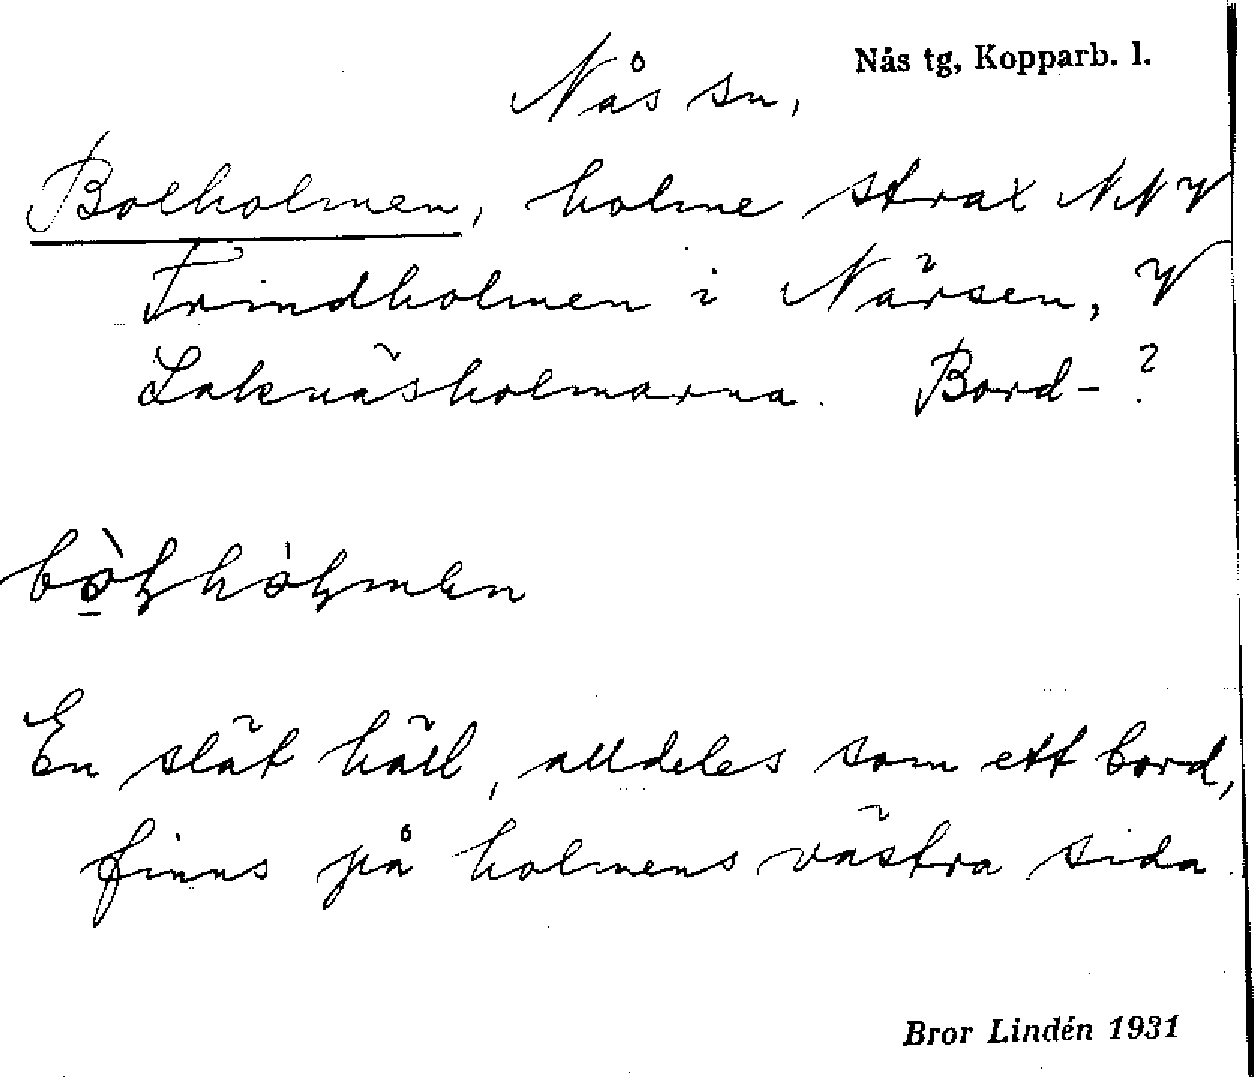 Nås tg, Kopparb. l.
Nås sn,
Bolholmen, holme strax NNV
Trindholmen i Närsen, V
Laknäsholmarna. Bord-?
En slät häll, alldeles som ett bord,
finns på holmens västra sida.
Bror Lindén 1931